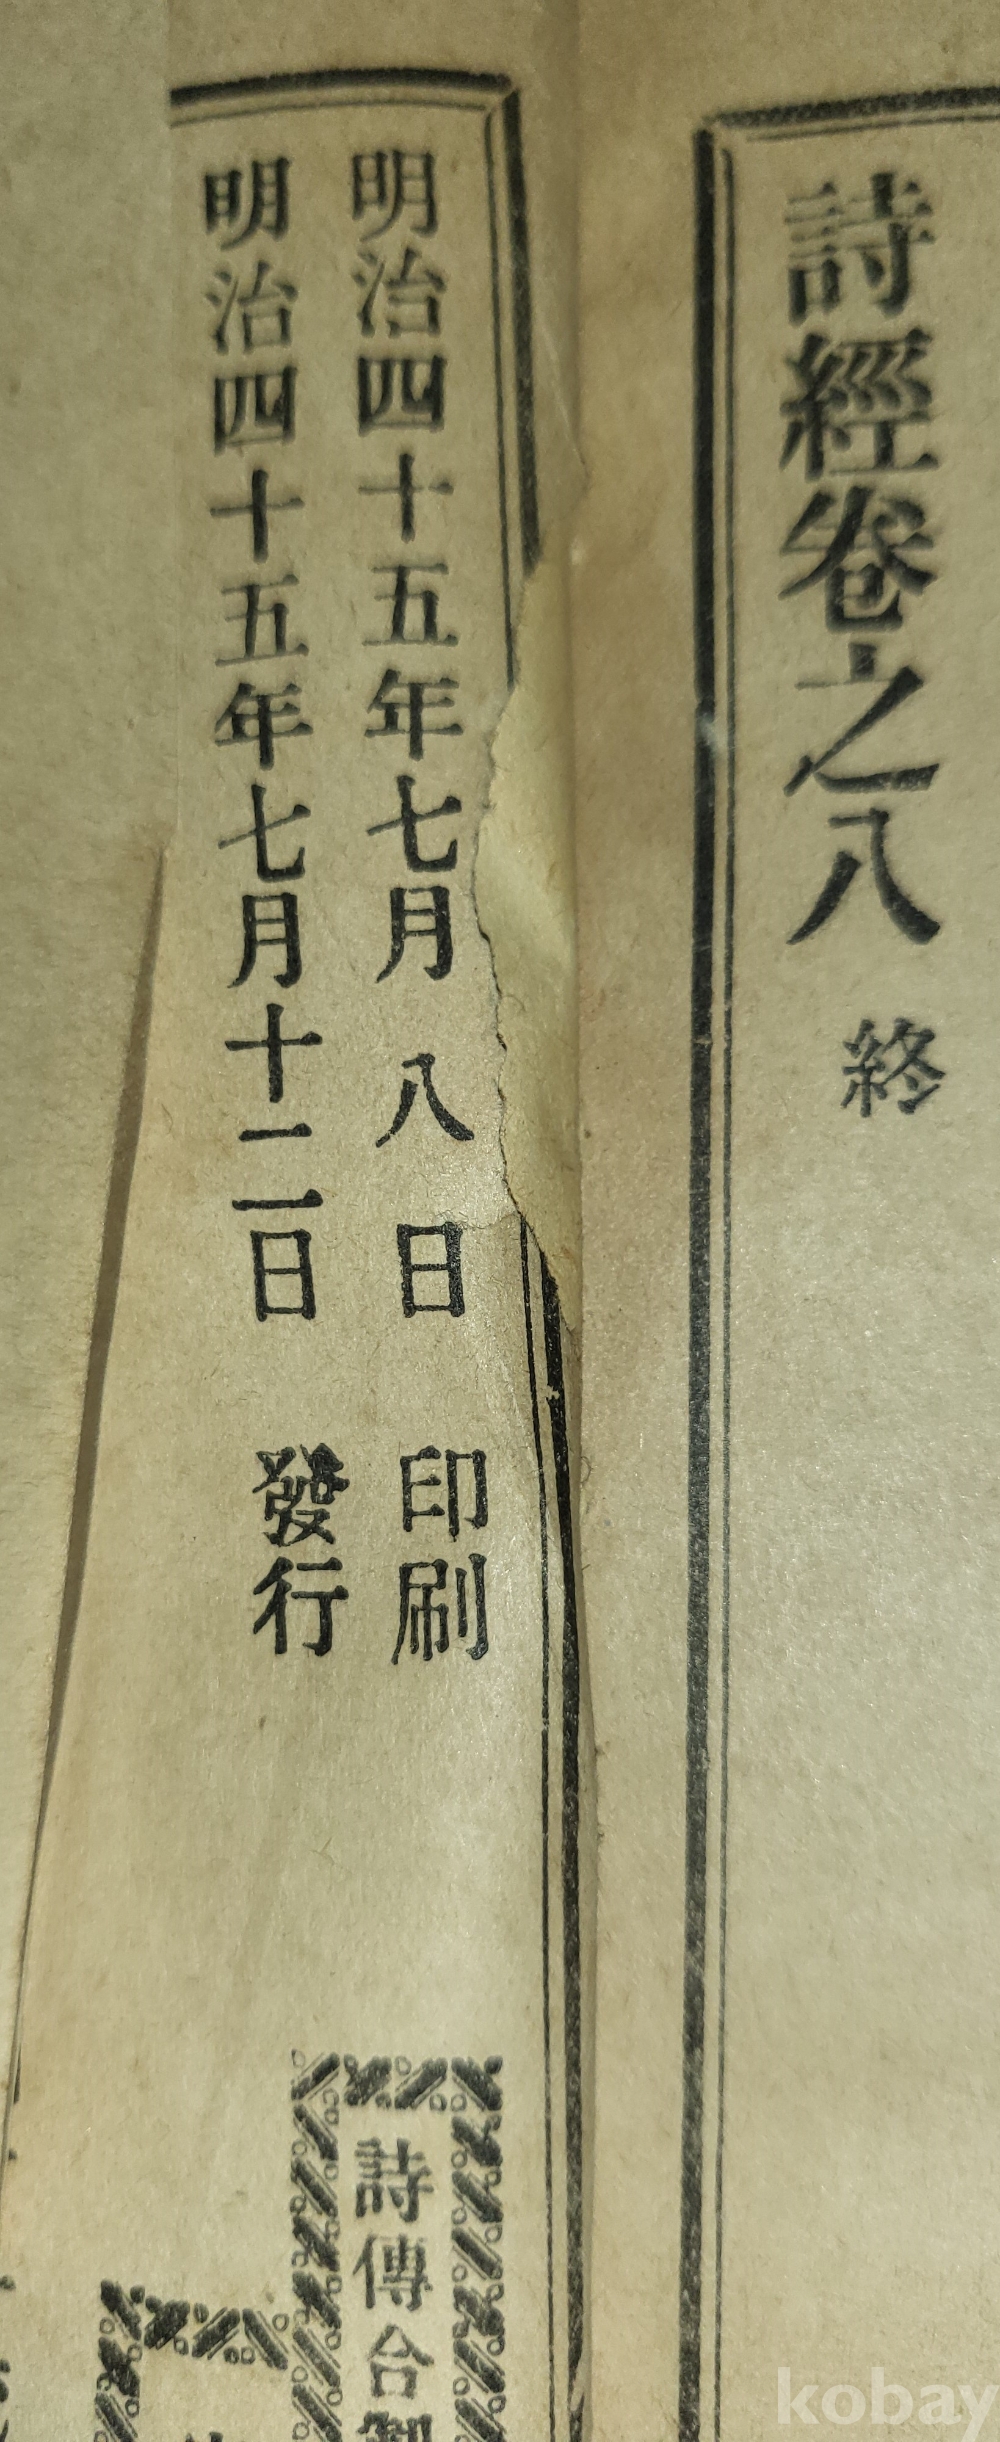 詩經卷之八 終
明治四十五年七月 八 日 印刷
明治四十五年七月十二日 發行
詩傳合
kobay